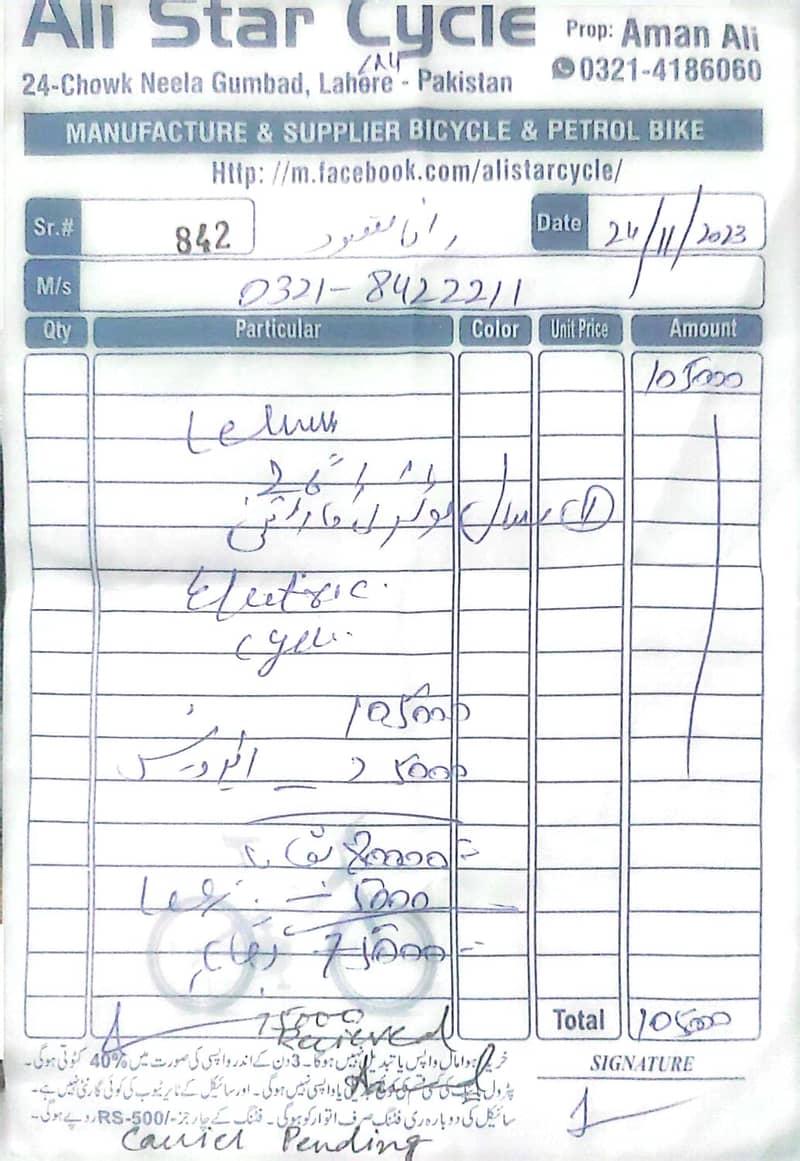 Ali Star Cycle
Prop: Aman Ali
24-Chowk Neela Gumbad, Lahore - Pakistan
0321-4186060
MANUFACTURE & SUPPLIER BICYCLE & PETROL BIKE
Http: //m.facebook.com/alistarcycle/
Sr.# 842
Date 24/11/2023
M/s 0321-8422211
Qty Particular Color Unit Price Amount
105000
Electric
cycle
105000
25000 ایڈوانس
80000 بقایا
5000
75000
75000
Recieved
Total 105000
خریدا ہوا مال واپس یا تبدیل نہیں ہوگا۔ 3 دن کے اندر واپسی کی صورت میں %40 کٹوتی ہوگی۔
SIGNATURE
اور سائیکل کے ٹائر ٹیوب کی کوئی گارنٹی نہیں ہے۔
سائیکل کی دوبارہ ری فٹنگ صرف اتوار کو ہوگی۔ فٹنگ کے چارجز -/RS-500 روپے ہوگی۔
Carrier Pending